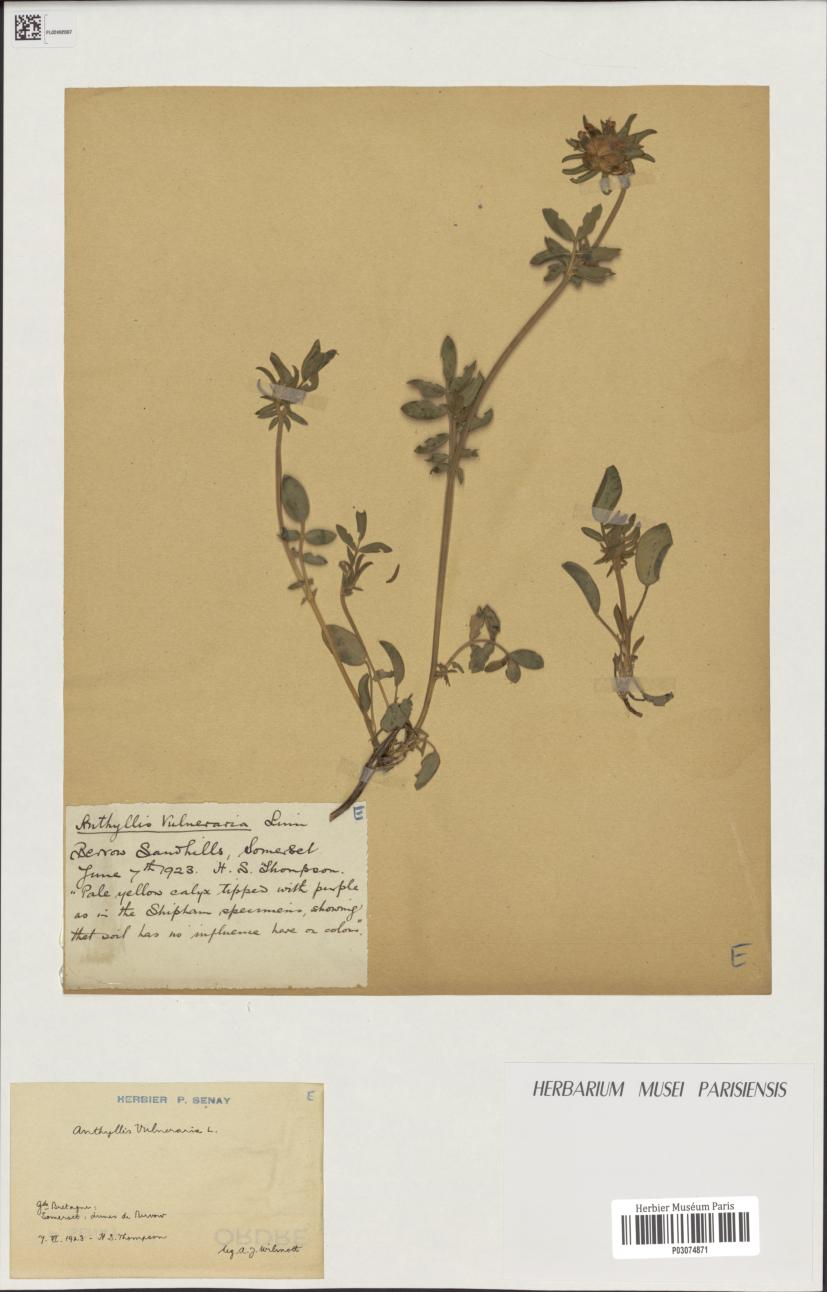 Anthyllis Vulneraria Linn
E
Berrow Sandhills, Somerset
June 7th 1923. H. S. Thompson.
"Pale yellow calyx tipped with purple
as in the Shipham specimens, showing
that soil has no influence here on colour".
E
HERBIER P. SENAY
E
Anthyllis Vulneraria L.
Gde Bretagne:
Somerset: dunes de Berrow
7. VI. 1923 - H. S. Thompson
leg. A. J. Wilmott
ORDRE
HERBARIUM MUSEI PARISIENSIS
Herbier Muséum Paris
P03074871